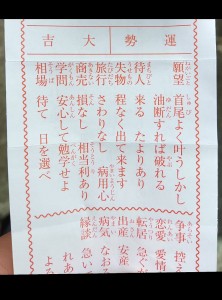 運勢 大吉
願望 首尾よく叶うしかし
油断すれば破れる
待人 来る たよりあり
失物 程なく出て来ます
旅行 さわりなし 病用心
商売 損なし 相当利あり
学問 安心して勉学せよ
相場 待て 日を選べ
争事 控え
恋愛 愛情
転居 急が
出産 安産
病気 なお
縁談 急い
れあ
よろ